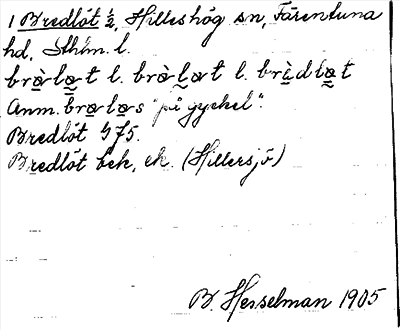 1 Bredlöt ½, Hilleshög sn, Färentuna
hd, Sthlm. l.
bralat l. bràlat l. brèdlat
Anm. bralas "på gyckel".
Bredlöt G 75.
Bredlöt bek, ek. (Hillersjö)
B. Hesselman 1905